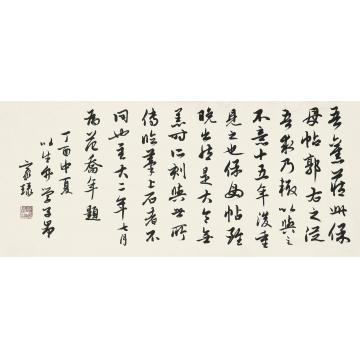 吾舊藏此保
母帖郭右之從
吾求乃輟以與之
不意十五年後重
見之也保母帖雖
晚出然是大令無
恙時所刻與世所
傳臨摹上石者不
同也至大二年七月
為范喬年題
丁酉中夏
以生學子昂